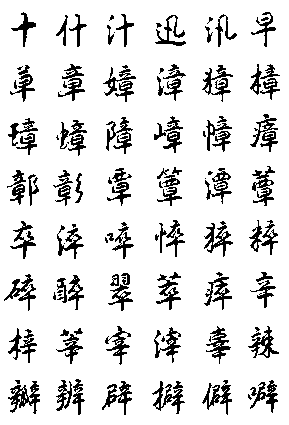 十 什 汁 迅 汛 早
草 章 嫜 漳 獐 樟
璋 蟑 障 嶂 幛 瘴
鄣 彰 覃 簟 潭 蕈
卒 淬 啐 悴 猝 粹
碎 醉 翠 萃 瘁 辛
梓 莘 宰 滓 辜 辣
瓣 辨 辟 擗 僻 噼